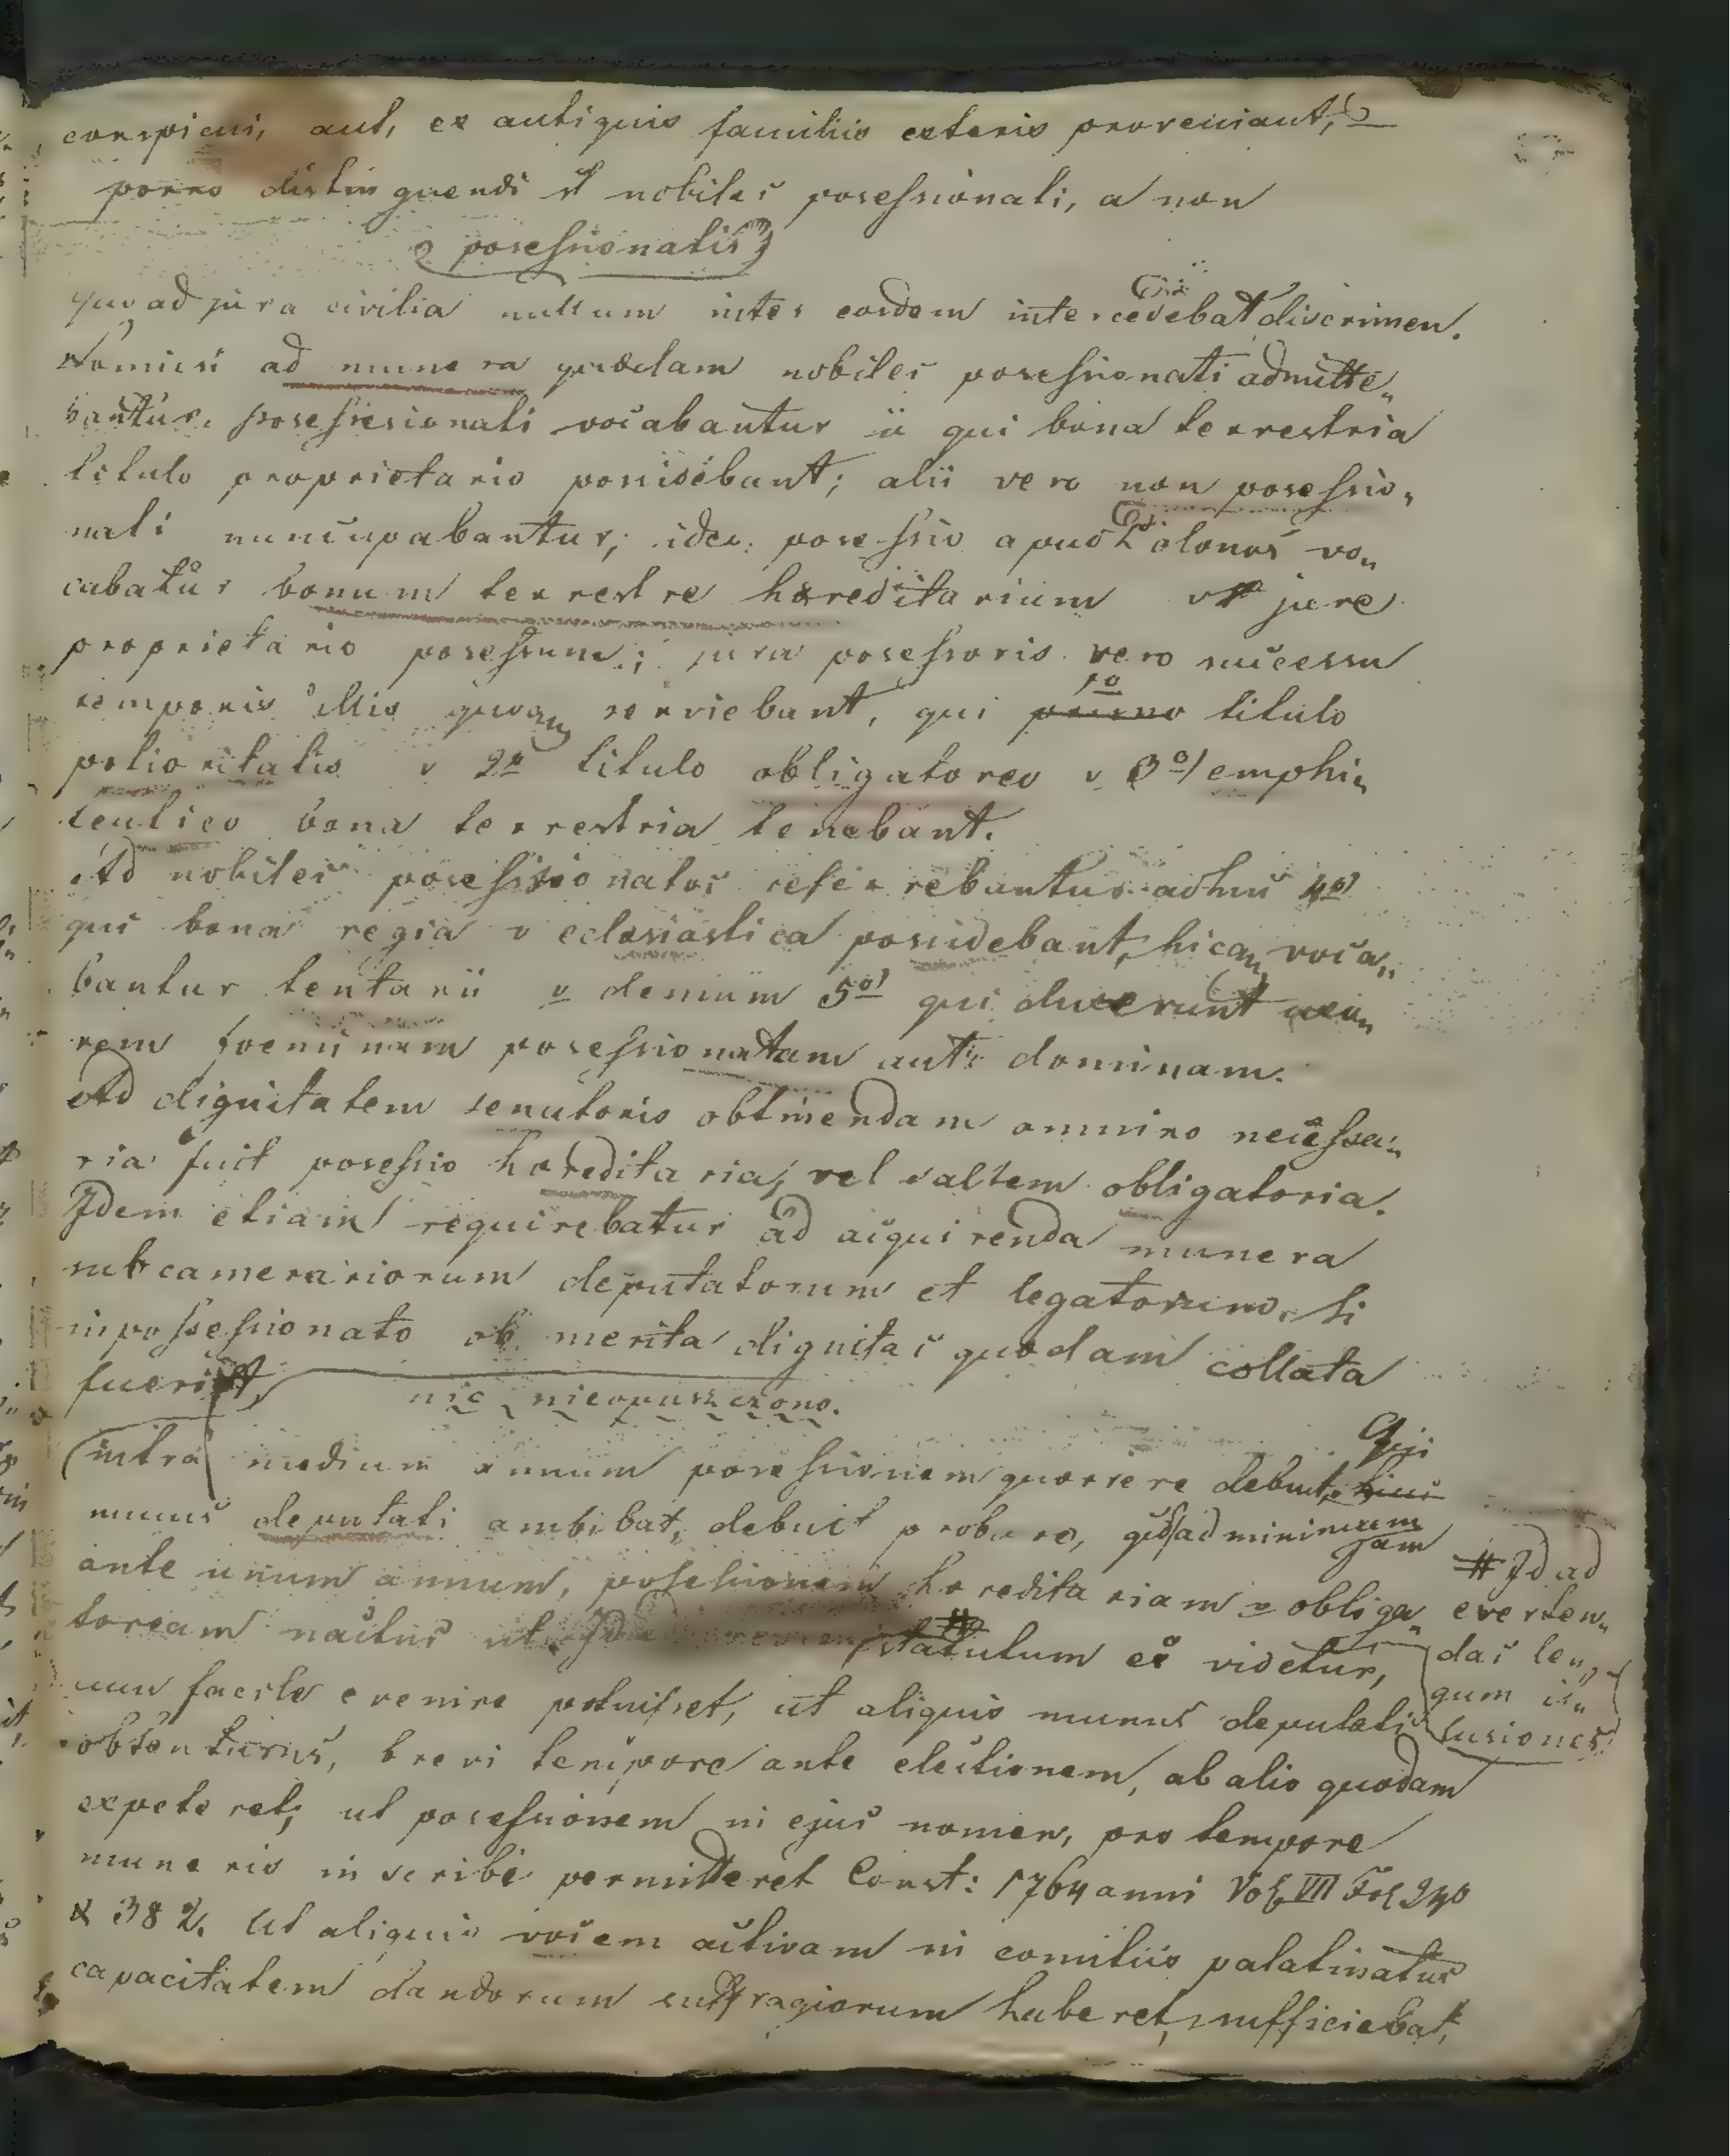 conspicui, aut, ex antiquis familiis exteris proveniant,
porro distinguendi st nobiles posessionati, a non
posessionatis
quoad jura civilia nullum inter eosdem intercedebat discrimen.
Nonnisi ad munera quædam nobiles posessionati admitte„
bantur. possessionati vocabantur ii qui bona terrestria
titulo proprietario possidebant; alii vero non posessio„
nati nuncupabantur; ideo posessio apud Polonos vo„
cabatur bonum terrestre hæreditarium v jure
proprietario posessum; jura posessoris vero successu
temporis illis quoq serviebant, qui primo 1o titulo
potioritatis v 2o titulo obligatoreo v 3o/ emphi„
teutico bona terrestria tenebant.
Ad nobiles posessionatos referrebantur adhuc 4o/
qui bona regia v eclesiastica possidebant, hicq voca„
bantur tentarii v demum 5o/ qui duxerunt uxo„
rem foeminam posessionatam aut dominam.
Ad dignitatem senatoris obtinendam omnino necessa„
ria fuit posessio hæreditaria, vel saltem obligatoria.
Idem etiam requirebatur ad acquirenda munera
subcamerariorum deputatorum et legatorum, si
impossessionato ob merita dignitas quædam collata
fuerit,
nic nieopuszczono.
intra medium annum posessionem quærere debuit, Qui
munus deputati ambibat, debuit probare, qd ad minimum
jam
ante unum annum, posessionem hæreditariam v obliga„
toream nactus sit. # statutum ee videtur,
# Id ad
everten„
das le„
gum il„
lusiones
cum facile evenire potuisset, ut aliquis munus deputati
obtenturus, brevi tempore ante electionem, ab alio quodam
expeteret, ut posessionem in ejus nomen, pro tempore
muneris inscribi permitteret Const: 1764 anni Vol VII Fol 240
& 382. Ut aliquis vocem activam in comitiis palatinatus
capacitatem dandorum suffragiorum haberet, sufficiebat,